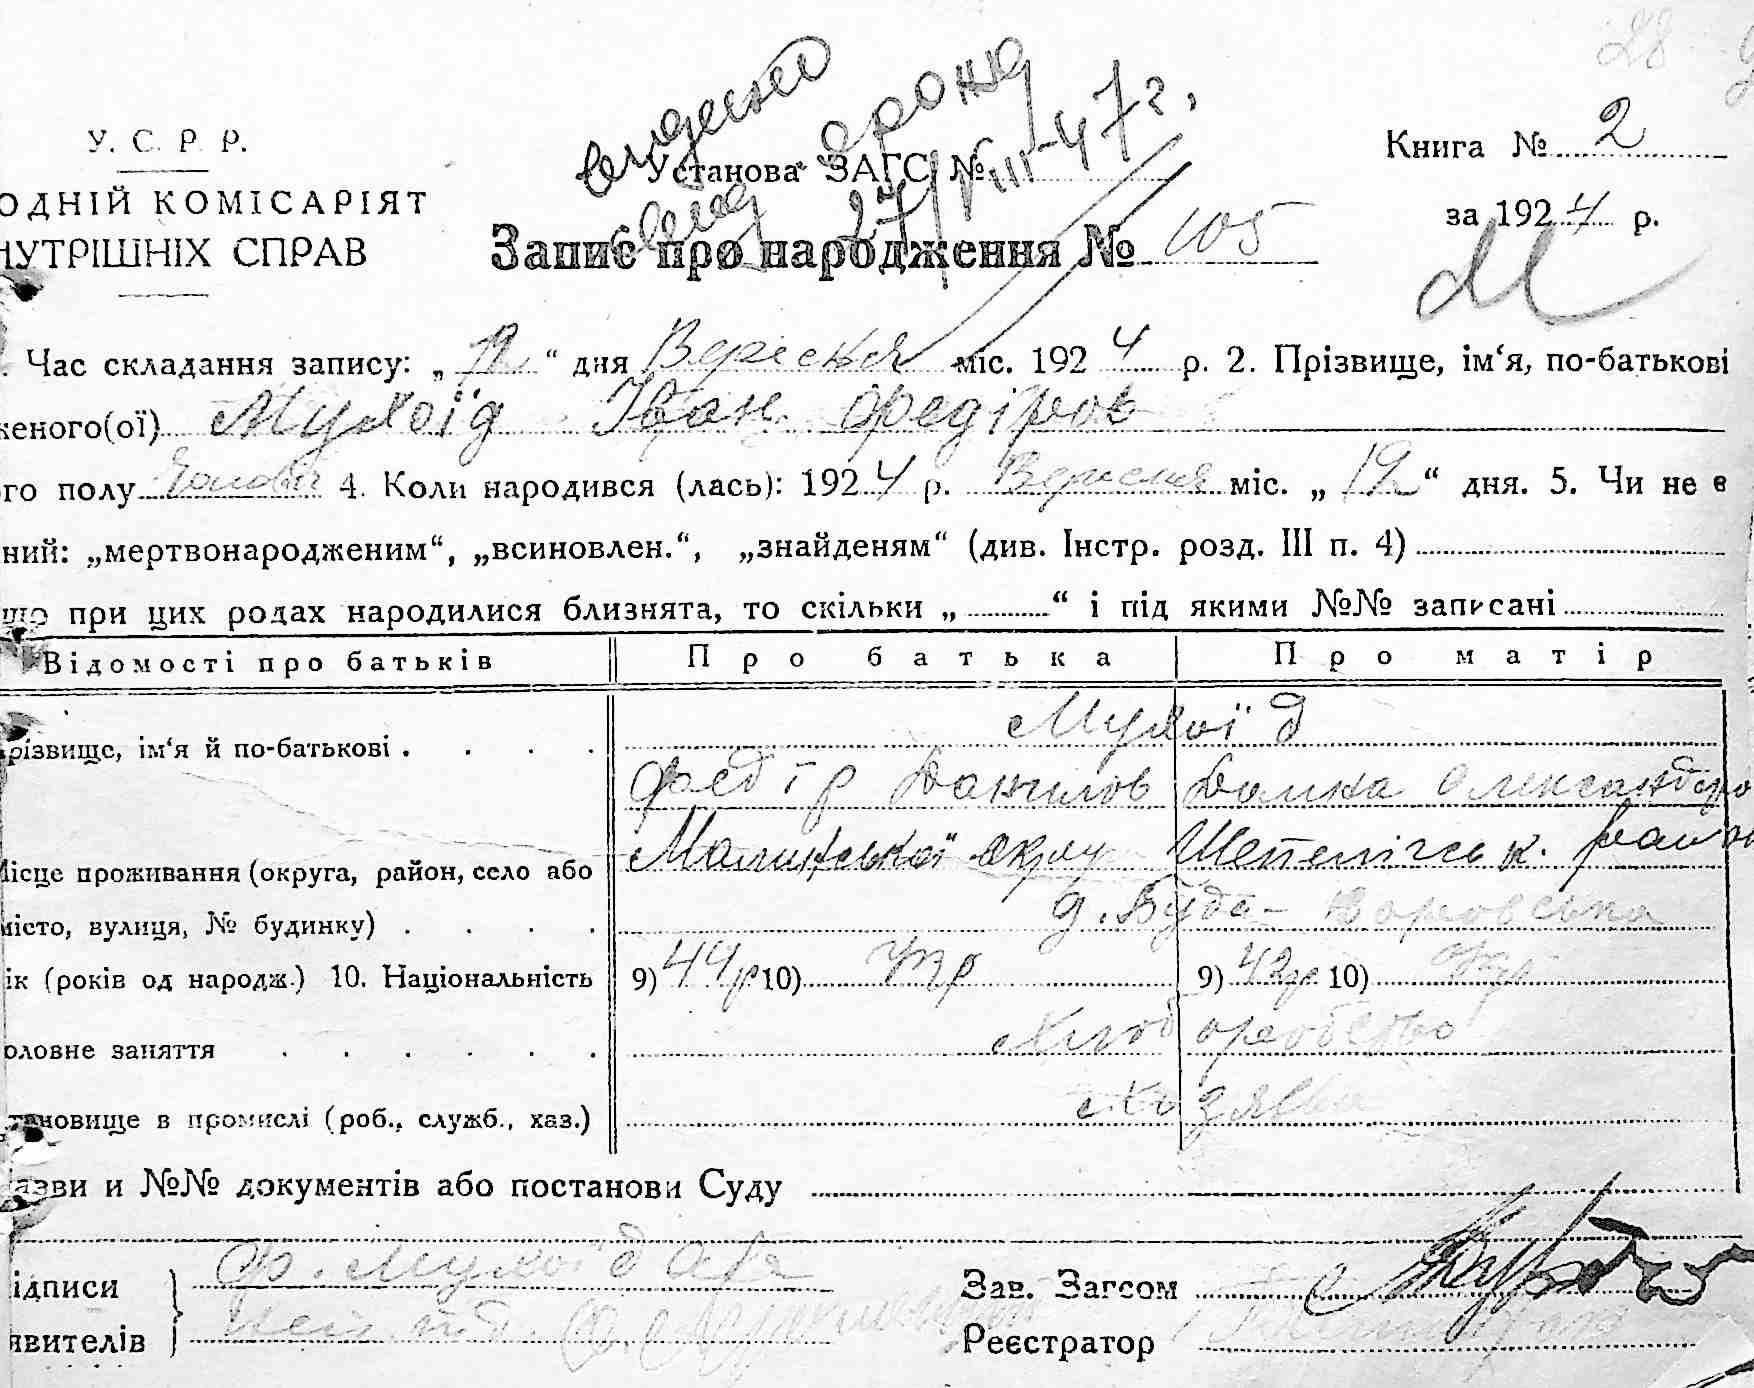 28
У. С. Р. Р.
ОДНІЙ КОМІСАРІЯТ
НУТРІШНІХ СПРАВ
видено
27/VIII-47 г.
Установа ЗАГС №
Запис про народження № 105
Книга № 2
за 1924 р.
. Час складання запису: „12“ дня Вересня міс. 1924 р. 2. Прізвище, ім‘я, по-батькові
женого(ої) Мухоїд Іван Федіров
го полу Чолові 4. Коли народився (лась): 1924 р. Вересня міс. „12“ дня. 5. Чи не є
ний: „мертвонародженим“, „всиновлен.“, „знайденям“ (див. Інстр. розд. III п. 4)
що при цих родах народилися близнята, то скільки „ “ і під якими №№ записані
Відомості про батьків Про батька Про матір
Мухоїд
різвище, ім‘я й по-батькові . . . .
Федір Данилов Домка Олександро
Малинської округ Шепеличськ. район
ісце проживання (округа, район, село або
д. Буда-Варовська
місто, вулиця, № будинку) . . . .
ік (років од народж.) 10. Національність 9) 44р 10) Укр 9) 42р 10) Укр
оловне заняття . . . . . . Хліборобство
тановище в промислі (роб., служб., хаз.) Хозяева
азви и №№ документів або постанови Суду
ідписи Ф. Мухоїд
явителів
Зав. Загсом
Реєстратор